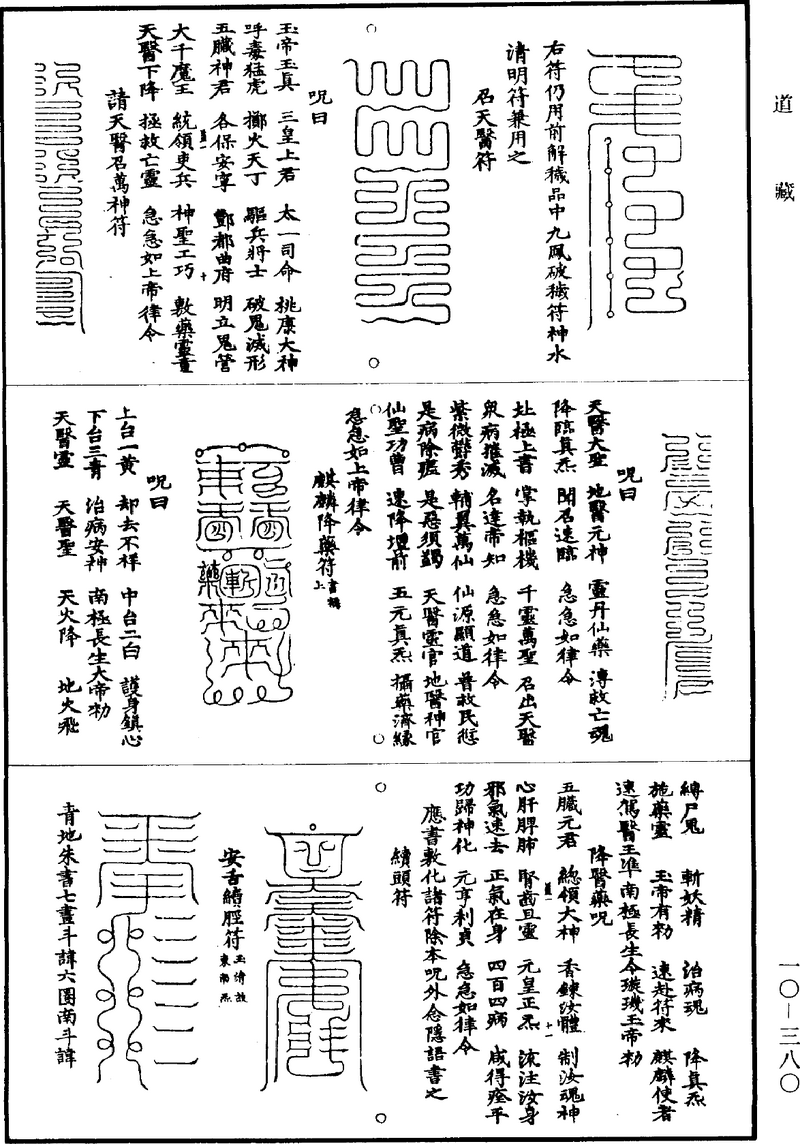 道藏
右符仍用前解穢品中九鳳破穢符神水
清明符兼用之
召天醫符
呪曰
玉帝玉真　三皇上君　太一司命　桃康大神
呼毒猛虎　擲火天丁　驅兵將士　破鬼滅形
五臟神君　各保安寧　酆都曲府　明立鬼營
大千魔王　統領吏兵　神聖工巧　敷藥靈童
天醫下降　拯救亡靈　急急如上帝律令
請天醫召萬神符
呪曰
天醫大聖　地醫元神　靈丹仙藥　溥救亡魂
降臨真炁　聞召速臨　急急如律令
北極上書　掌執樞機　千靈萬聖　召出天醫
衆病摧滅　名達帝知　急急如律令
紫微鬱秀　輔翼萬仙　仙源顯道　普救民愆
是病除瘥　是惡須蠲　天醫靈官　地醫神官
仙聖功曹　速降壇前　五元真炁　攝藥濟緣
急急如上帝律令
麒麟降藥符書橋上
呪曰
上台一黃　却去不祥　中台二白　護身鎮心
下台三青　治病安神　南極長生大帝勑
天醫靈　天醫聖　天火降　地火飛
縛尸鬼　斬妖精　治病魂　降真炁
施藥靈　玉帝有勑　速赴符來　麒麟使者
速駕醫王準南極長生令璇璣玉帝勑
降醫藥呪
五臟元君　總領大神　香鍊汝體　制汝魂神
心肝脾肺　腎齒旦靈　元皇正炁　流注汝身
邪氣速去　正氣在身　四百四病　咸得痊平
功歸神化　元亨利貞　急急如律令
應書敷化諸符除本呪外念隱語書之
續頭符
安舌續脛符玉清設東南炁
青地朱書七畫斗諱六圈南斗諱
一〇—三八〇